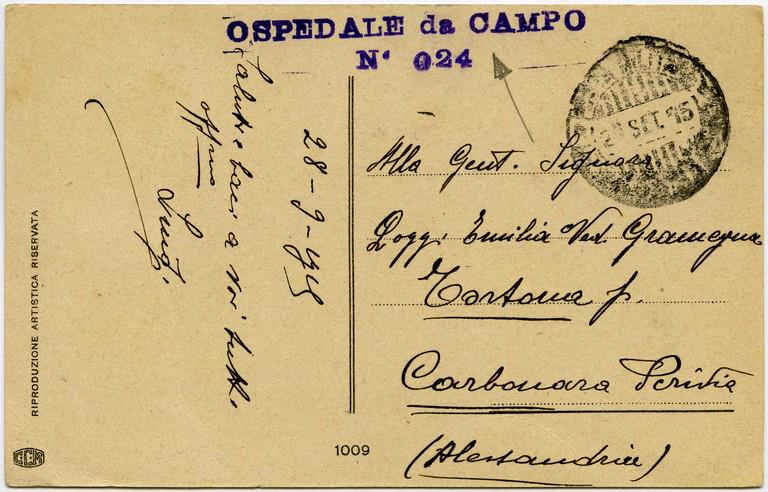 OSPEDALE da CAMPO
N° 024
28 SET. 15
28-9-1915
Saluti e baci a voi tutti.
aff.mo
Alla Gent. Signora
Emilia Ved. Gramegna
Tortona p.
Carbonara Scrivia
(Alessandria)
RIPRODUZIONE ARTISTICA RISERVATA
1009
CCM